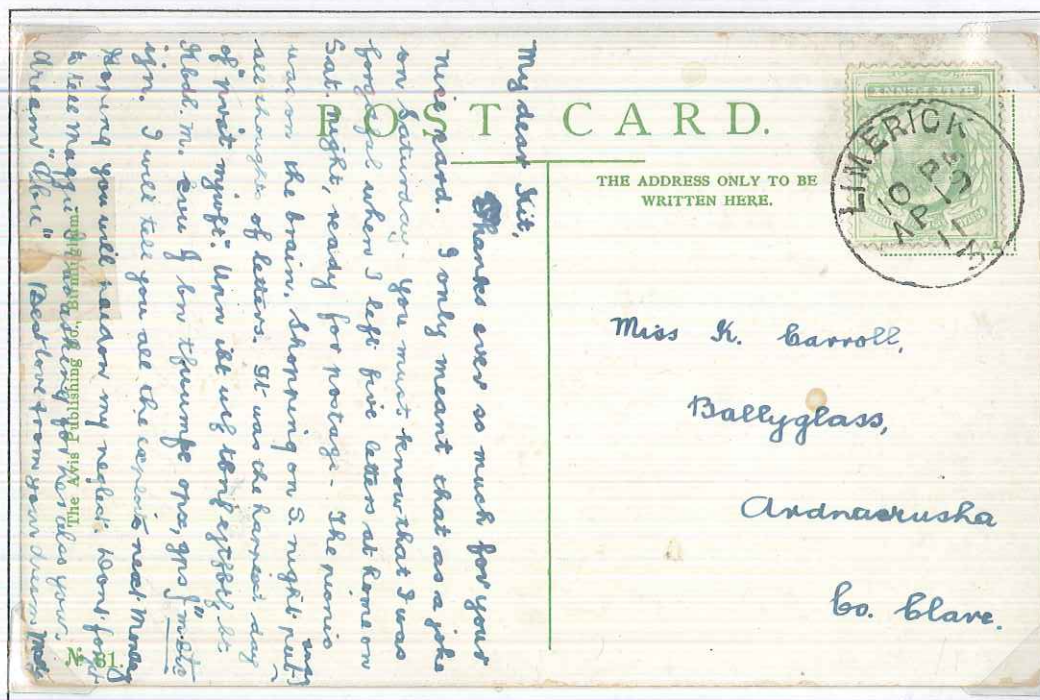 POST CARD.
THE ADDRESS ONLY TO BE
WRITTEN HERE.
LIMERICK
10 P
AP 17
11
Miss K. Carroll,
Ballyglass,
Ardnacrusha
Co. Clare.
My dear Kit,
Thanks ever so much for your
nice card. I only meant that as a joke
on Saturday - You must know that I was
forgetful when I left five letters at home on
Sat. night, ready for postage - The picnic
was on the brain. Shopping on S. night put
all thoughts of letters. It was the harriest day
of
I will tell you all the next Monday
Hoping you will pardon my neglect. Dont forget
to tell Maggie I was asking for her also your
dream "Abie" Best love from your dream
The Avis Publishing Co., Birmingham.
No 81.